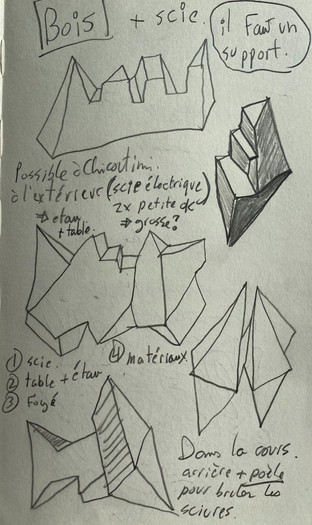 Bois + scie.
il Faut un
support.
Possible à Chicoutimi.
à l'extérieur (scie électrique)
2x petite ok
⇒ étau
+ table.
⇒ grosse?
① scie.
② table + étau
③ Foyé
④ matériaux
Dans la cours.
arrière + poêle
pour bruler les
sciures